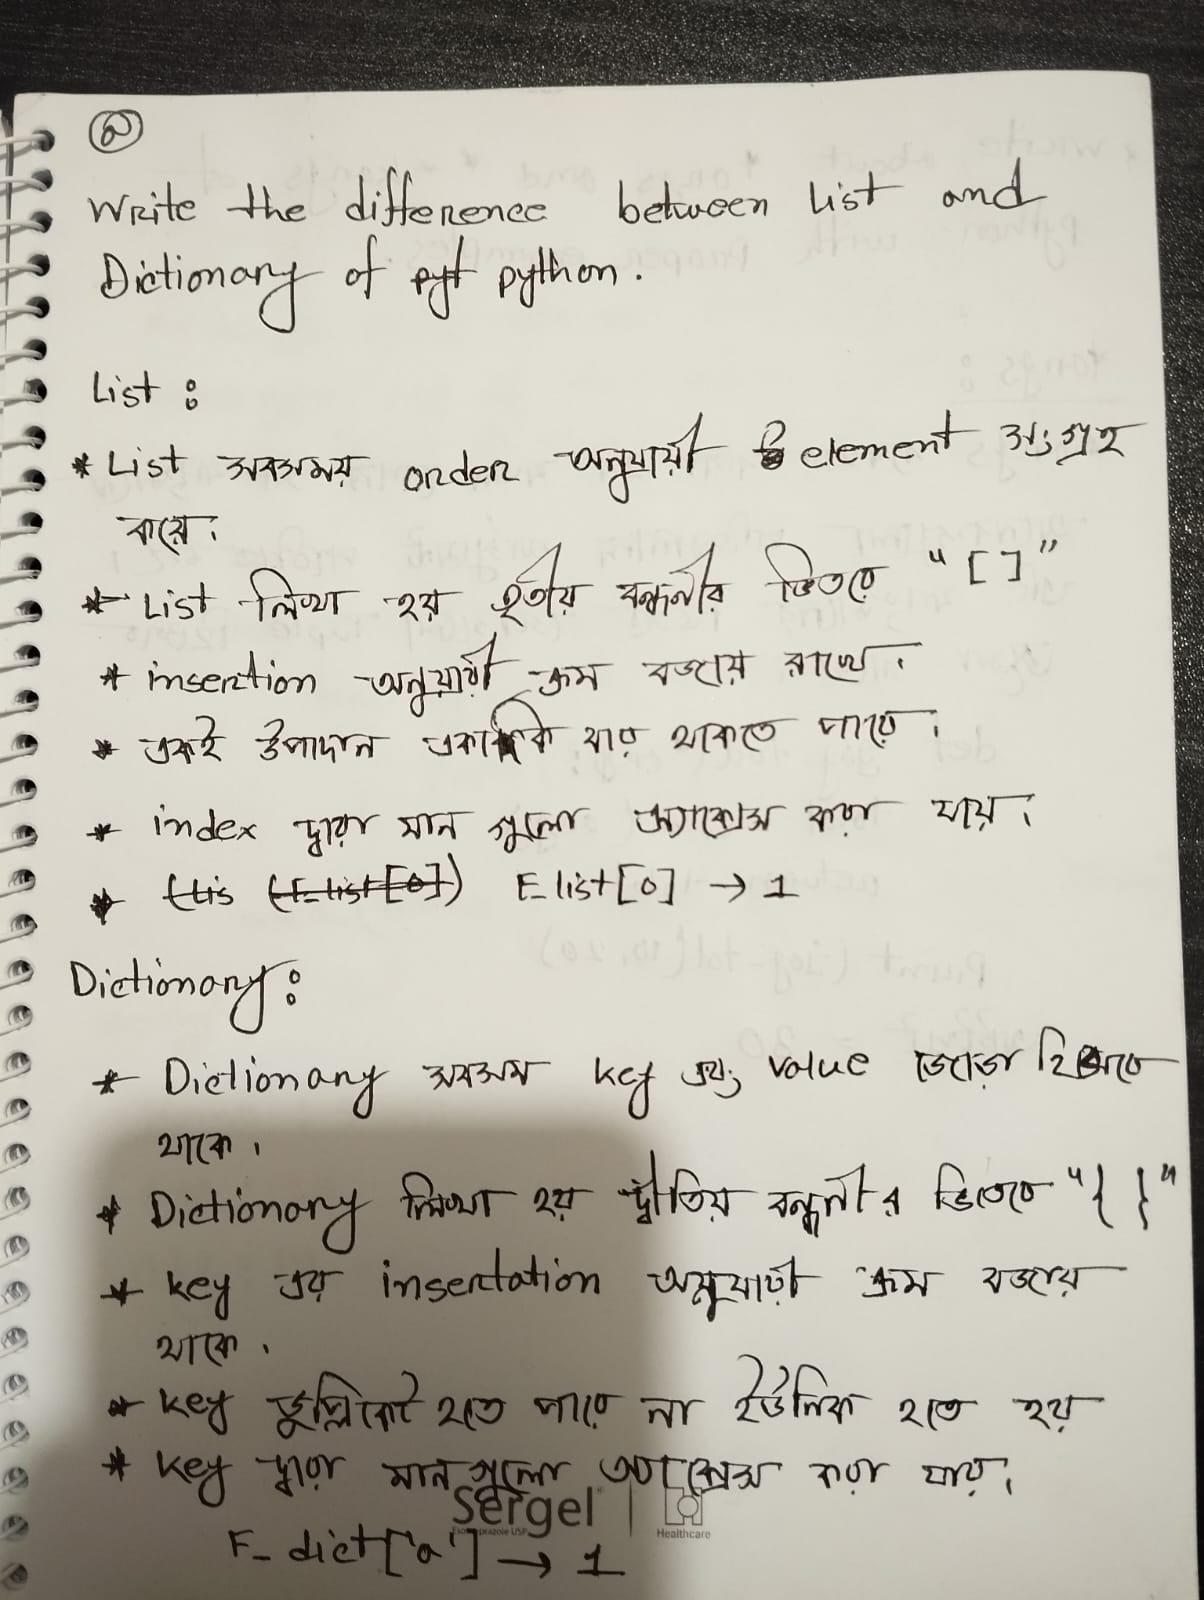 ২
Write the difference between List and
Dictionary of pyt python.
List :
* List সবসময় order অনুযায়ী element সংগ্রহ
করে।
* List লিখা হয় তৃতীয় বন্ধনীর ভিতরে “[ ]”
* insertion অনুযায়ী ক্রম বজায় রাখে।
* একই উপাদান একাধিক বার থাকতে পারে।
* index দ্বারা মান গুলো অ্যাক্সেস করা যায়।
* (lis (F_list[0]) F_list[0] → 1
Dictionary:
* Dictionary সবসম key এবং value জোড়া হিসাবে
থাকে।
* Dictionary লিখা হয় দ্বীতিয় বন্ধনীর ভিতেরে “{ }”
* key এর insertation অনুযায়ী ক্রম বজায়
থাকে।
* key ডুপ্লিকেট হতে পারে না ইউনিক হতে হয়
* key দ্বারা মানগুলো অ্যাক্সেস করা যায়।
Sergel
Esomeprazole USP
Healthcare
F_dict['a'] → 1